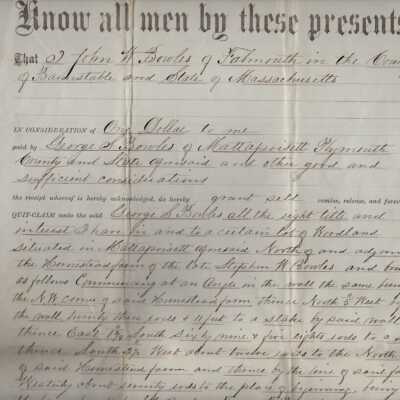 Know all men by these presents
That I John W Bowles of Falmouth in the Coun
of Barnstable and State of Massachusetts
IN CONSIDERATION of One Dollar to me
paid by George S Bowles of Mattapoisett Plymouth
County and State aforesaid and other good and
sufficient considerations
the receipt whereof is hereby acknowledged, do hereby grant sell remise, release, and forev
QUIT-CLAIM unto the said George S Bowles all the right title and
interest I have in and to a certain lot of Woodland
situated in Mattapoisett aforesaid North of and adjoin
the Homestead farm of the late Stephen W Bowles and boun
as follows Commencing at an Angle in the wall the same being
the N.W. corner of said Homestead farm thence North West by
the wall twenty three rods & to a stake by said wall
thence East South sixty nine & five eights rods to a
thence South West about twelve rods to the North
of said Homestead farm and thence by the line of said fa
Westerly about seventy rods to the place of beginning, being